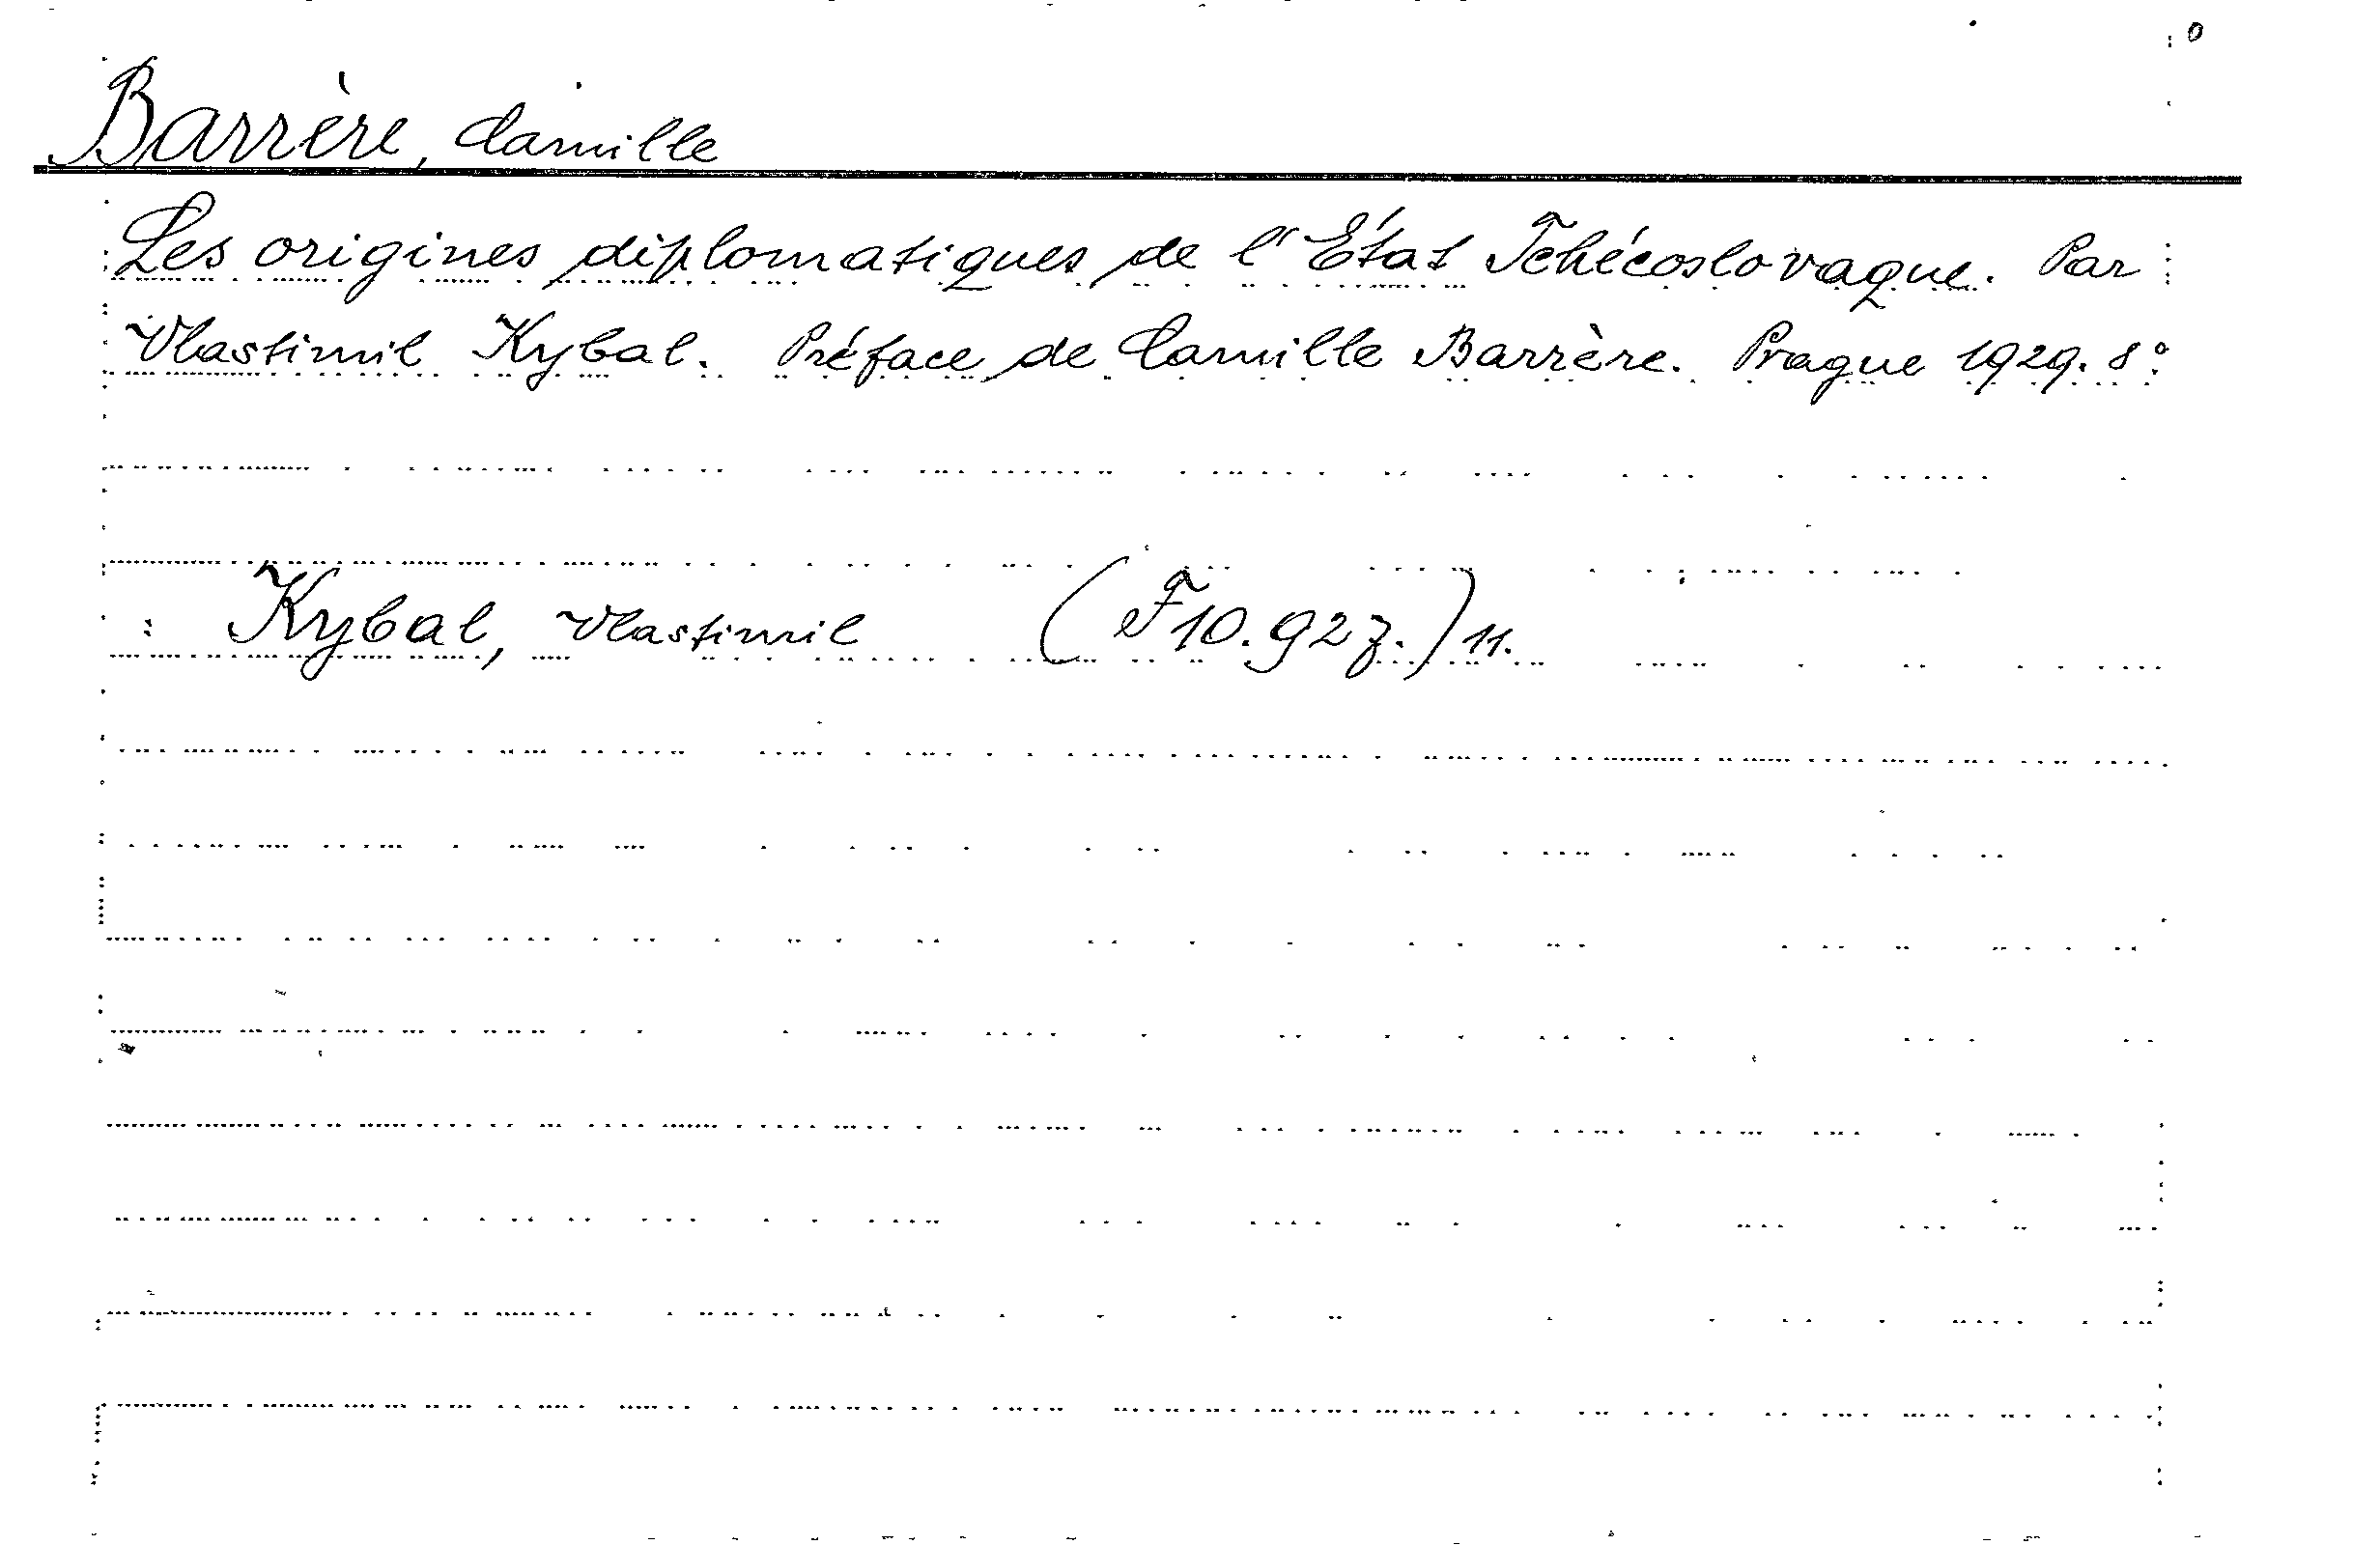 Barrère, Camille
Les origines diplomatiques de l'État Tchécoslovaque. Par
Vlastimil Kybal. Préface de Camille Barrère. Prague 1929. 8°.
: Kybal, Vlastimil (F 10.927.) 11.